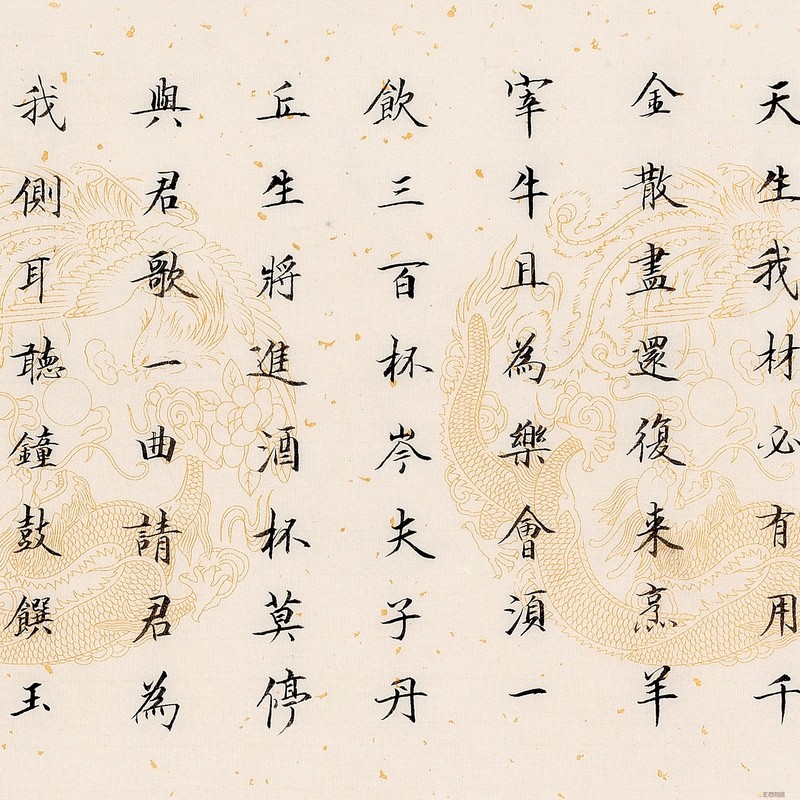 天生我材必有用千
金散盡還復来烹羊
宰牛且為樂會須一
飲三百杯岑夫子丹
丘生將進酒杯莫停
與君歌一曲請君為
我側耳聽鐘鼓饌玉